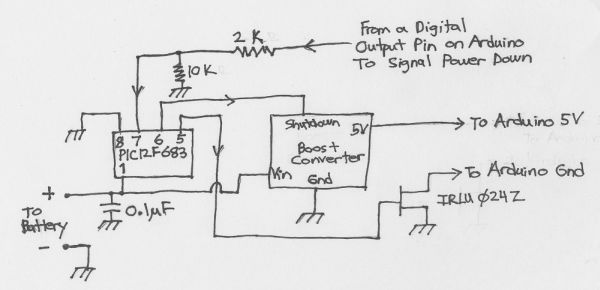 2K
From a Digital
Output Pin on Arduino
To Signal Power Down
10K
8 7 6 5
PIC12F683
1
Shutdown
5V
Boost
Converter
Vin
Gnd
To Arduino 5V
To Arduino Gnd
IRLU Ø24Z
+
To
Battery
-
0.1µF